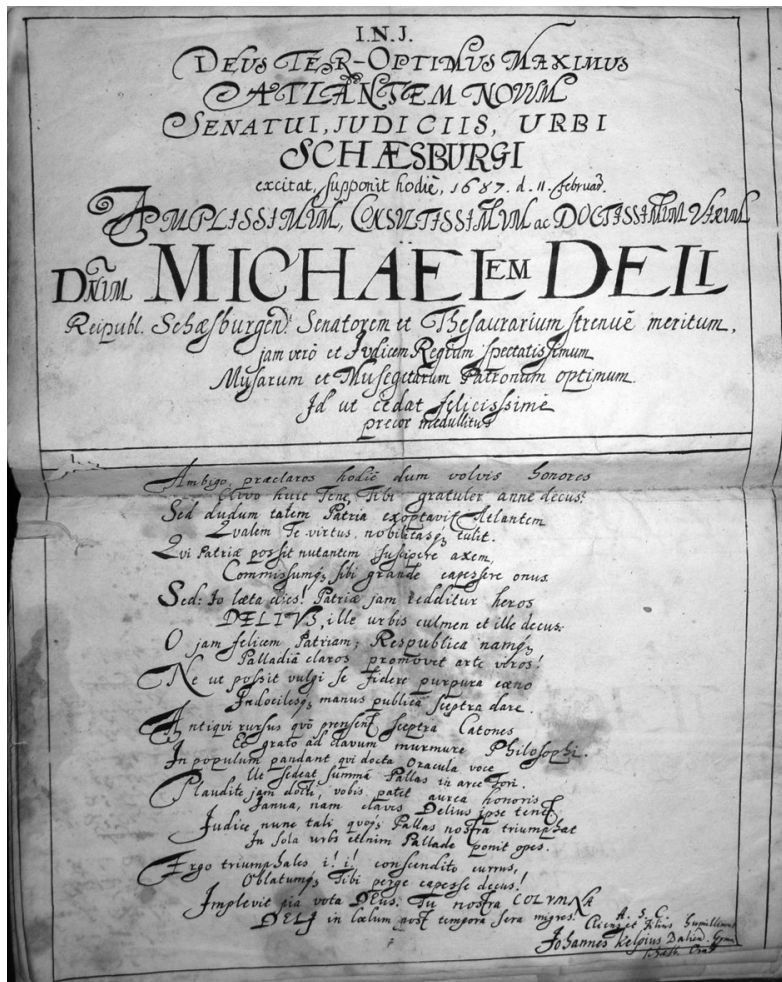 I.N.J.
DEUS TER-OPTIMUS MAXIMUS
ATLANTEM NOVUM
SENATUI, JUDICIIS, URBI
SCHÆSBURGI
excitat, supponit hodiè, 1687. d. 11. februar.
AMPLISSIMUM, CONSULTISSIMUM ac DOCTISSIMUM VIRUM
DÑUM MICHAËLEM DELI
Reipubl. Schæsburgens. Senatorem et Thesaurarium strenuè meritum,
jam verò et Judicem Regium spectatissimum
Musarum et Musegetarum Patronum optimum.
Id ut cedat felicissimè
precor medullitus
Ambigo, præclaros hodiè dum volvis honores
huic Tene, Tibi gratuler anne decus?
Sed dudum talem Patria exoptavit Atlantem
Qvalem Te virtus, nobilitasq; tulit.
Qvi Patriæ possit nutantem suscipere axem,
Commissumq; sibi grande capessere onus.
Sed: Io læta dies! Patriæ jam redditur heros
DELIVS, ille urbis culmen et ille decus.
O jam felicem Patriam; Respublica namq;
Palladiâ claros promovet arte viros!
Ne ut possit vulgi se fidere purpura cæno
Indocilesq; manus publica sceptra dare.
Antiqui rursus qvò prensent sceptra Catones
Et grato ad clavum murmure Philosophi.
In populum pandant qvi docta Oracula voce
Ut sedeat summâ Pallas in arce fori.
Plaudite jam docti, vobis patet aurea honoris
Janua, nam claves Delius ipse tenet
Judice nunc tali qvoq; Pallas nostra triumphat
In sola urbs etenim Pallade ponit opes.
Ergo triumphales i! i! conscendito currus,
Oblatumq; Tibi perge capesse decus!
Implevit pia vota DEus. Tu nostra COLVMNA
DELI in cælum post tempora sera migres!
A. S. C.
Cliens et Filius humillimus
Johannes Kelpius Dalien. Gymn.
Schæsb. Orat.